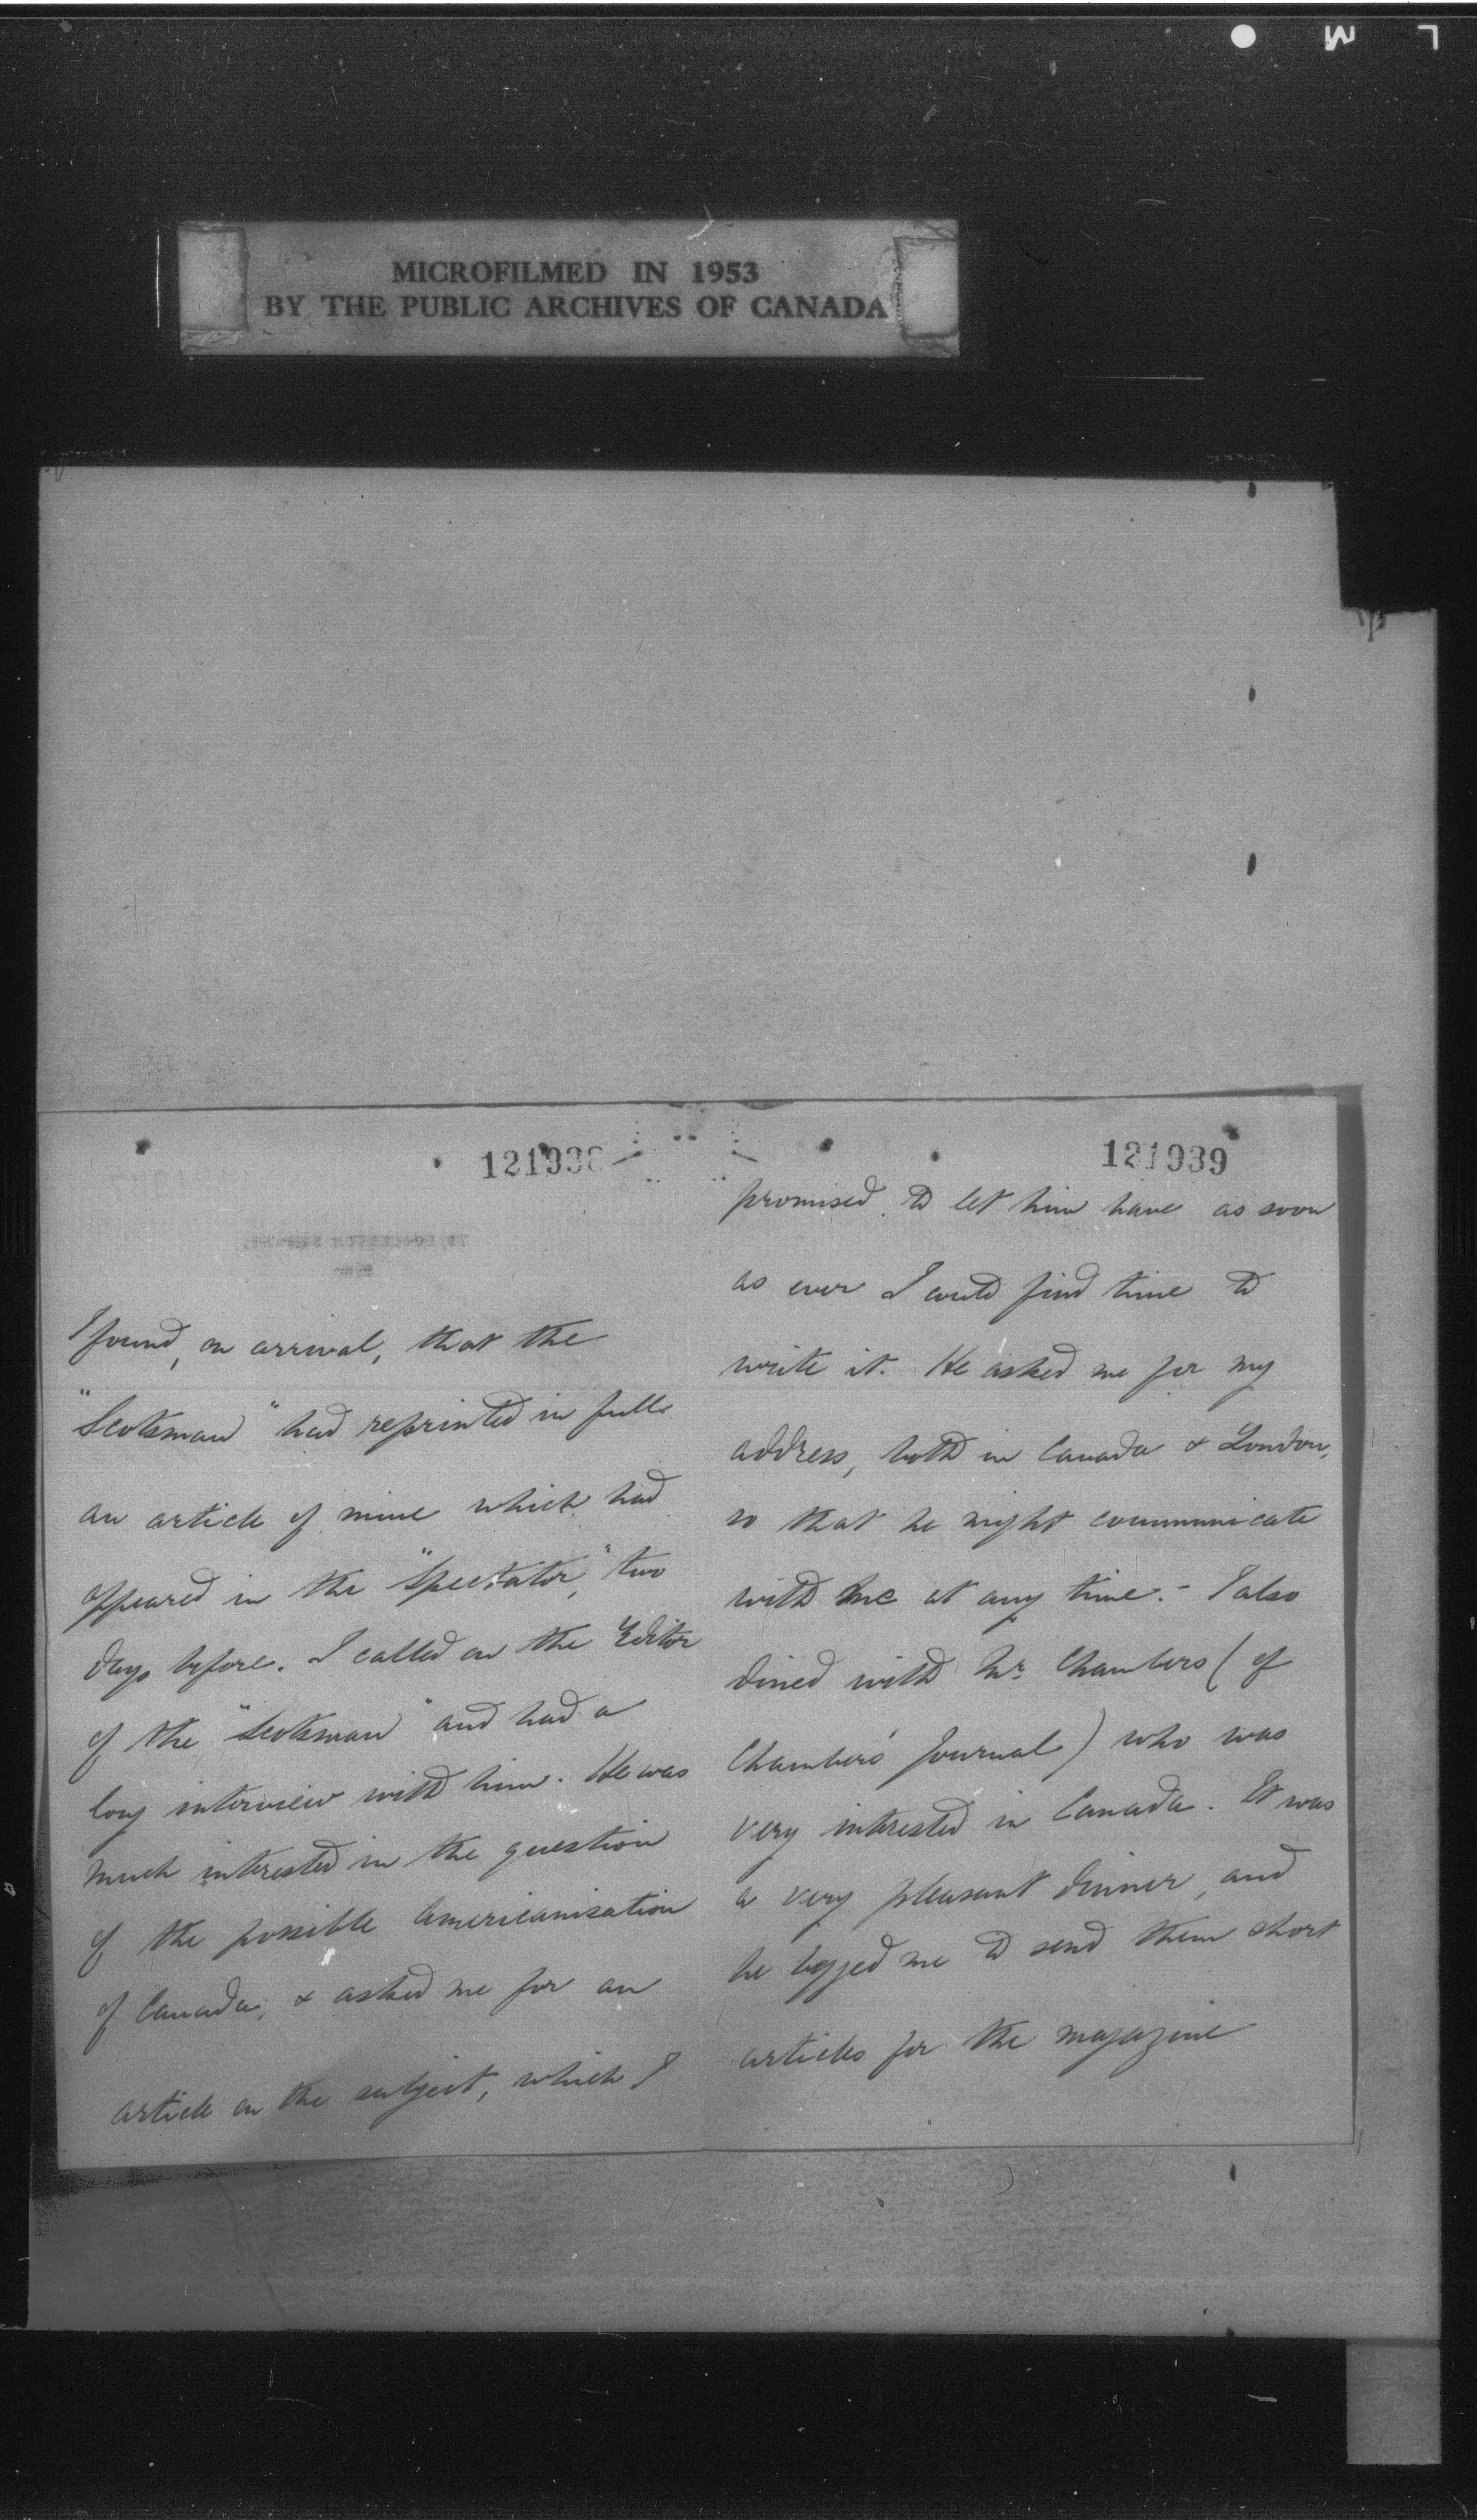 MICROFILMED IN 1953
BY THE PUBLIC ARCHIVES OF CANADA
121938
I found, on arrival, that the
"Scotsman" had reprinted in full
an article of mine which had
appeared in the "Spectator," two
days before. I called on the Editor
of the "Scotsman" and had a
long interview with him. He was
much interested in the question
of the possible Americanisation
of Canada, & asked me for an
article on the subject, which I
121939
promised to let him have as soon
as ever I could find time to
write it. He asked me for my
address, both in Canada & London,
so that he might communicate
with me at any time. - I also
dined with Mr. Chambers (of
Chambers' Journal) who was
very interested in Canada. It was
a very pleasant dinner, and
he begged me to send them short
articles for the magazine